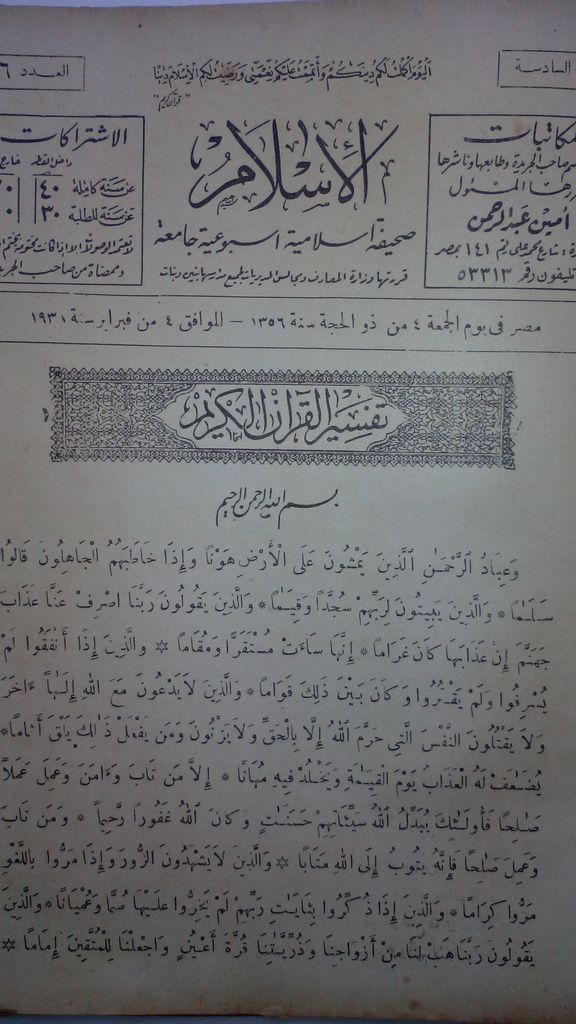 اليوم أكملت لكم دينكم وأتممت عليكم نعمتي ورضيت لكم الإسلام دينا
"قرآن كريم"
السادسة
العدد ٦
الإسلام
صحيفة اسلامية اسبوعية جامعة
قررتها وزارة المعارف ومجالس المديريات لجميع مدارسها بنين وبنات
مكاتبات
صاحب الجريدة وطابعها وناشرها
المسئول
أمين عبد الرحمن
شارع محمد على رقم ١٤١ بمصر
تليفون رقم ٥٣٣١٣
الاشتراكات
داخل القطر خارج
عن سنة كاملة ٤٠
عن سنة للطلبة ٣٠
وممضاة من صاحب الجريدة
مصر فى يوم الجمعة ٤ من ذو الحجة سنة ١٣٥٦ — الموافق ٤ من فبراير سنة ١٩٣
تفسير القرآن الكريم
بسم الله الرحمن الرحيم
وَعِبَادُ الرَّحْمَـٰنِ الَّذِينَ يَمْشُونَ عَلَى الْأَرْضِ هَوْنًا وَإِذَا خَاطَبَهُمُ الْجَاهِلُونَ قَالُوا
سَلَـٰمًا * وَالَّذِينَ يَبِيتُونَ لِرَبِّهِمْ سُجَّدًا وَقِيَـٰمًا * وَالَّذِينَ يَقُولُونَ رَبَّنَا اصْرِفْ عَنَّا عَذَابَ
جَهَنَّمَ إِنَّ عَذَابَهَا كَانَ غَرَامًا * إِنَّهَا سَاءَتْ مُسْتَقَرًّا وَمُقَامًا * والَّذِينَ إِذَا أَنفَقُوا لَمْ
يُسْرِفُوا وَلَمْ يَقْتُرُوا وَكَانَ بَيْنَ ذَلِكَ قَوَامًا * وَالَّذِينَ لَا يَدْعُونَ مَعَ اللهِ إِلَـٰهًا ءَاخَرَ
وَلَا يَقْتُلُونَ النَّفْسَ الَّتِي حَرَّمَ اللهُ إِلَّا بِالْحَقِّ وَلَا يَزْنُونَ وَمَن يَفْعَلْ ذَٰلِكَ يَلْقَ أَثَامًا *
يُضَـٰعَفْ لَهُ الْعَذَابُ يَوْمَ الْقِيَـٰمَةِ وَيَخْلُدْ فِيهِ مُهَانًا * إِلَّا مَن تَابَ وَءَامَنَ وَعَمِلَ عَمَلًا
صَـٰلِحًا فَأُولَـٰئِكَ يُبَدِّلُ اللهُ سَيِّئَاتِهِمْ حَسَنَـٰتٍ وَكَانَ اللهُ غَفُورًا رَّحِيمًا * وَمَن تَابَ
وَعَمِلَ صَـٰلِحًا فَإِنَّهُ يَتُوبُ إِلَى اللهِ مَتَابًا * وَالَّذِينَ لَا يَشْهَدُونَ الزُّورَ وَإِذَا مَرُّوا بِاللَّغْوِ
مَرُّوا كِرَامًا * وَالَّذِينَ إِذَا ذُكِّرُوا بِئَايَـٰتِ رَبِّهِمْ لَمْ يَخِرُّوا عَلَيْهَا صُمًّا وَعُمْيَانًا * وَالَّذِينَ
يَقُولُونَ رَبَّنَا هَبْ لَنَا مِنْ أَزْوَاجِنَا وَذُرِّيَّـٰتِنَا قُرَّةَ أَعْيُنٍ وَاجْعَلْنَا لِلْمُتَّقِينَ إِمَامًا *